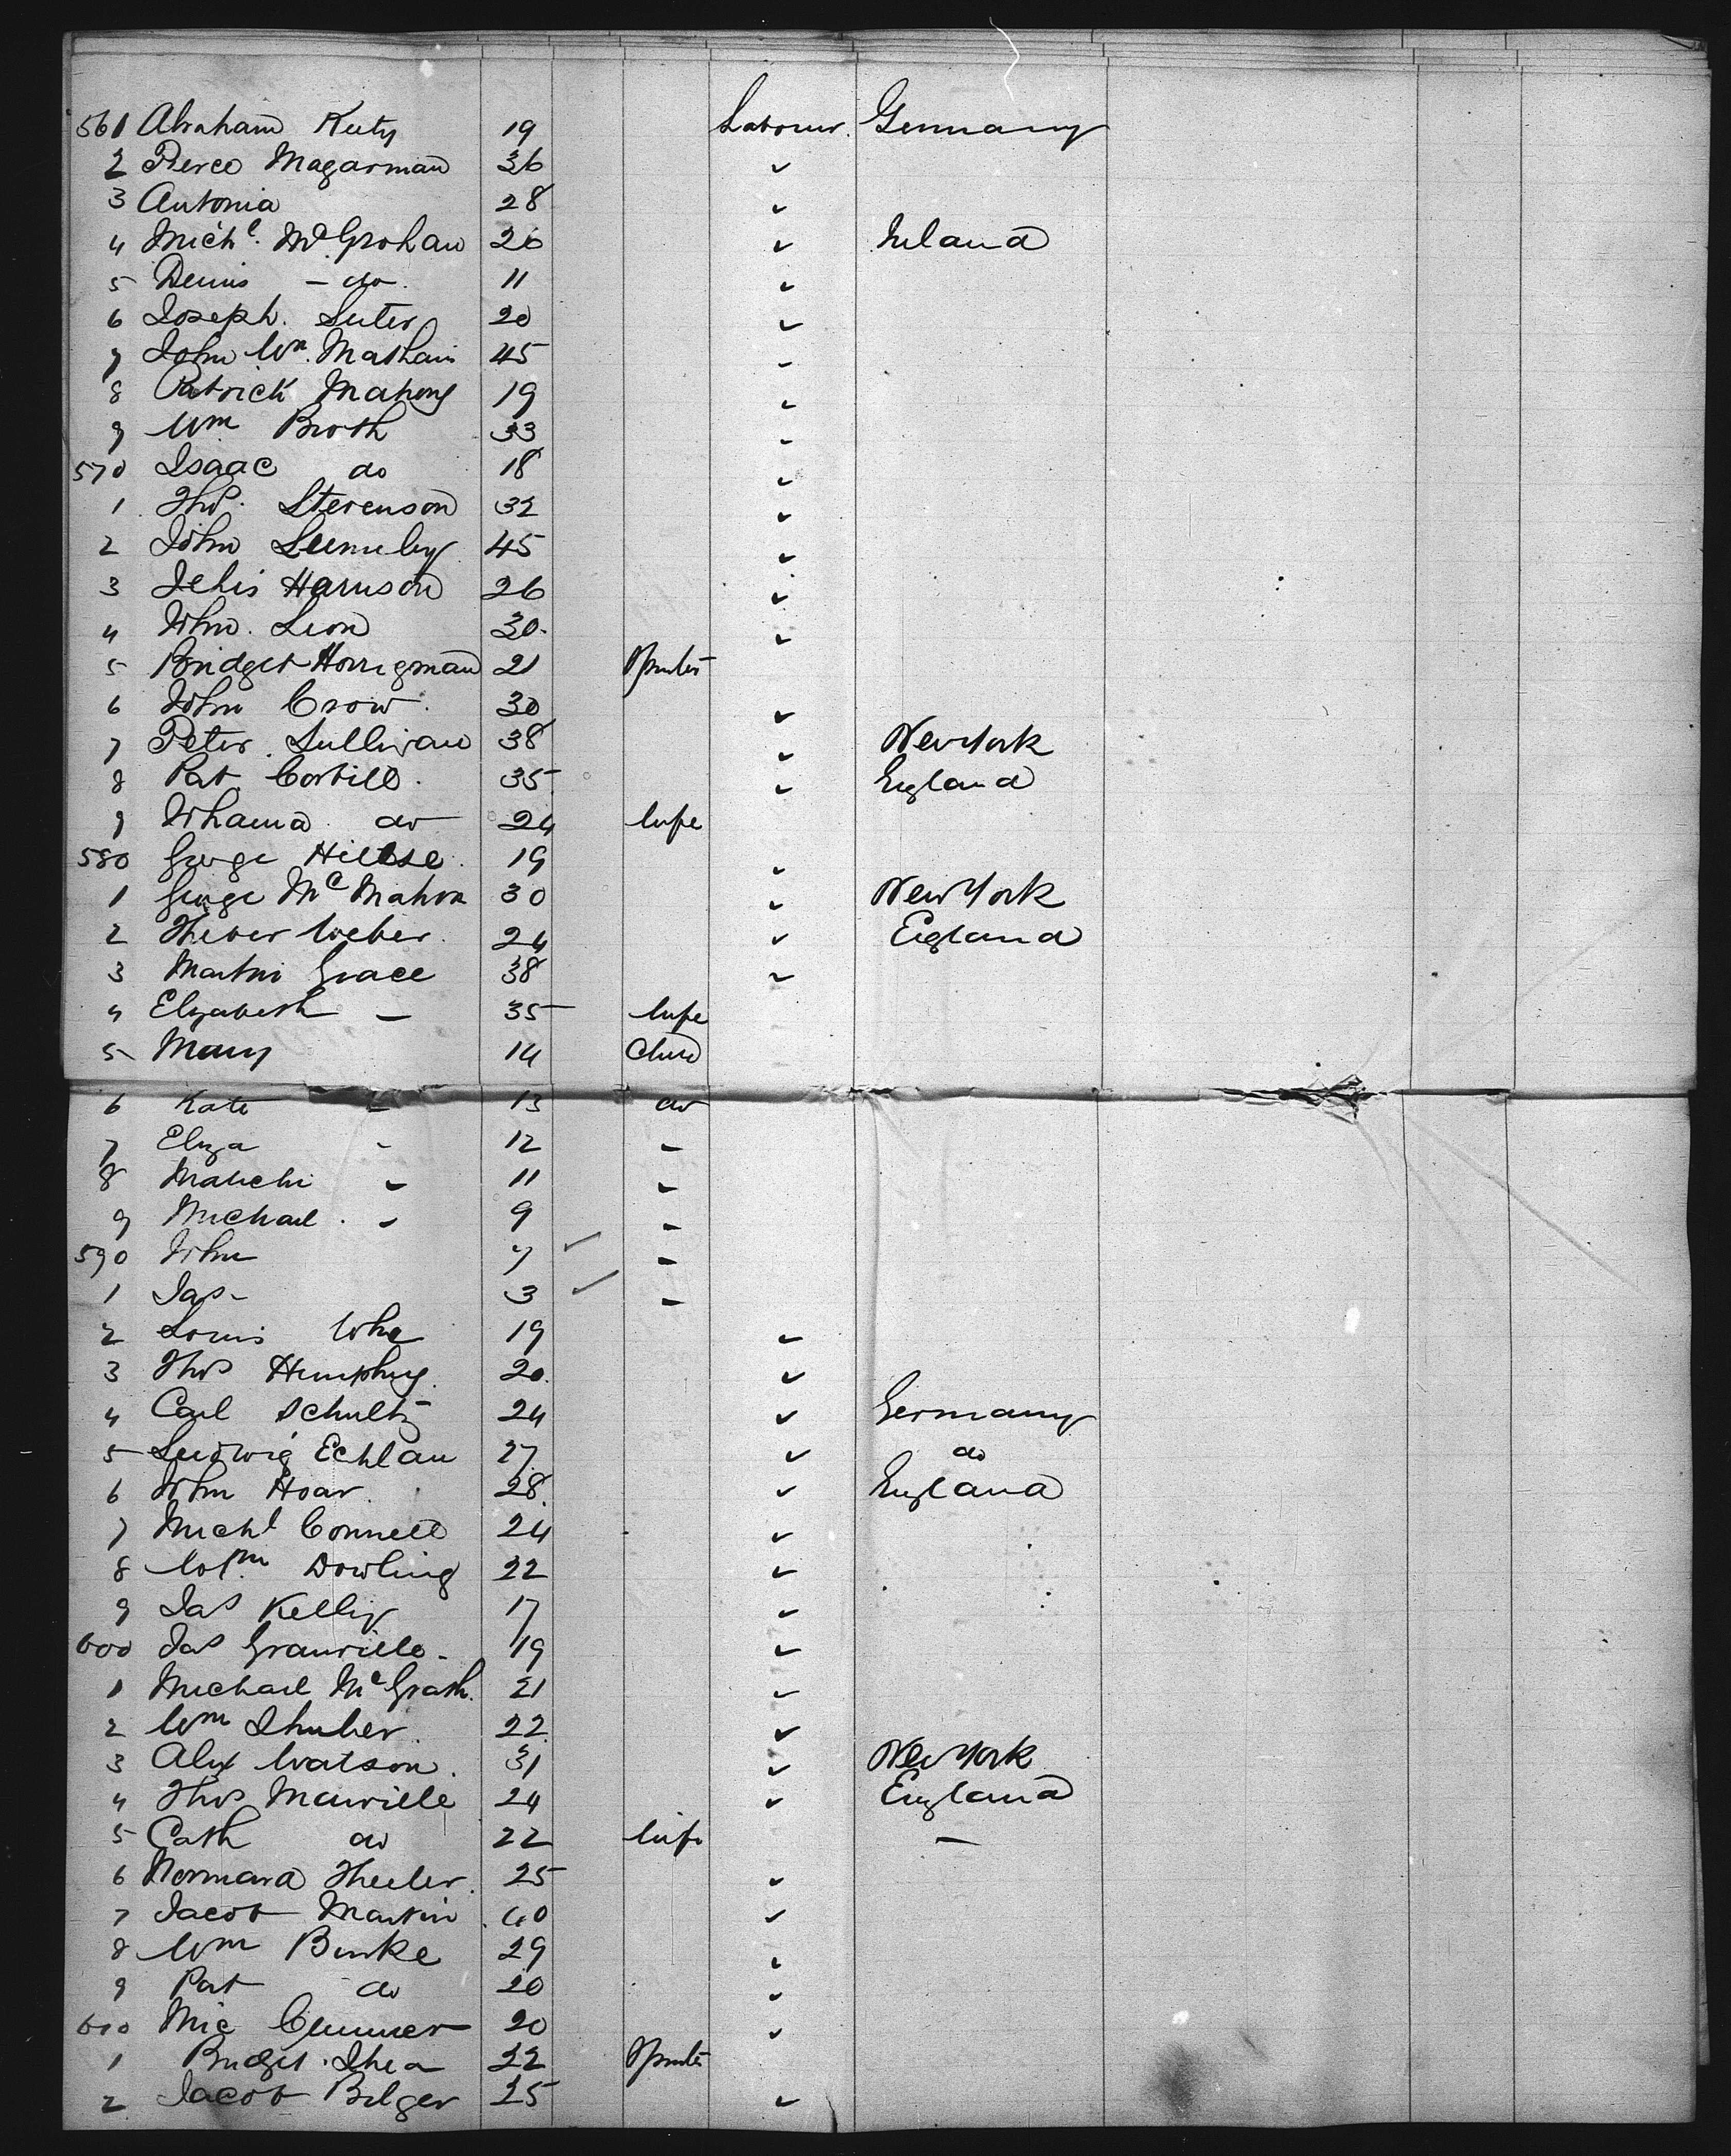 561 Abraham Kuty 19 Labourer. Germany
2 Pierce Magarman 36 "
3 Antonia 28 "
4 Michl. McGrohan 26 " Ireland
5 Denis - do. 11 "
6 Joseph. Suter 20 "
7 John Wm. Mathain 45 "
8 Patrick Mahony 19 "
9 Wm Broth 33 "
570 Isaac do 18 "
1 Thos. Stevenson 32 "
2 John 45 "
3 Harrison 26 "
4 John. Lion 30. "
5 Bridget Horrigman 21 Spinster
6 John Crow. 30 "
7 Peter. Sullivan 38 " New York
8 Pat Corbill. 35 " England
9 Johanna do 24 Wife
580 George 19 "
1 George McMahon 30 " New York
2 Weber. 24 " England
3 Martin Grace 38 "
4 Elizabeth - 35 Wife
5 Mary 14 Child
6 Kate " 13 do
7 Eliza " 12 "
8 " 11 "
9 Michael. " 9 "
590 John 7 "
1 Jas- 3 "
2 Louis 19 "
3 Thos Humphry. 20. "
4 Carl Schultz 24 " Germany
5 Ludwig Echlau 27. " do
6 John Hoar. 28. " England
7 Michl Connell 24 "
8 Dowling 22 "
9 Jas Kelly 17 "
600 Jas Granville- 19 "
1 Michael McGrath. 21 "
2 Wm Shuber. 22. "
3 Alex Watson. 31 " New York
4 Thos Manville 24 " England
5 Cath do 22 Wife -
6 Theeler. 25 "
7 Jacob Martin 40 "
8 Wm Burke 29 "
9 Pat do 20 "
610 Mic 20 "
1 Bridget. Shea 22 Spinster
2 Jacob Bilger 25 "